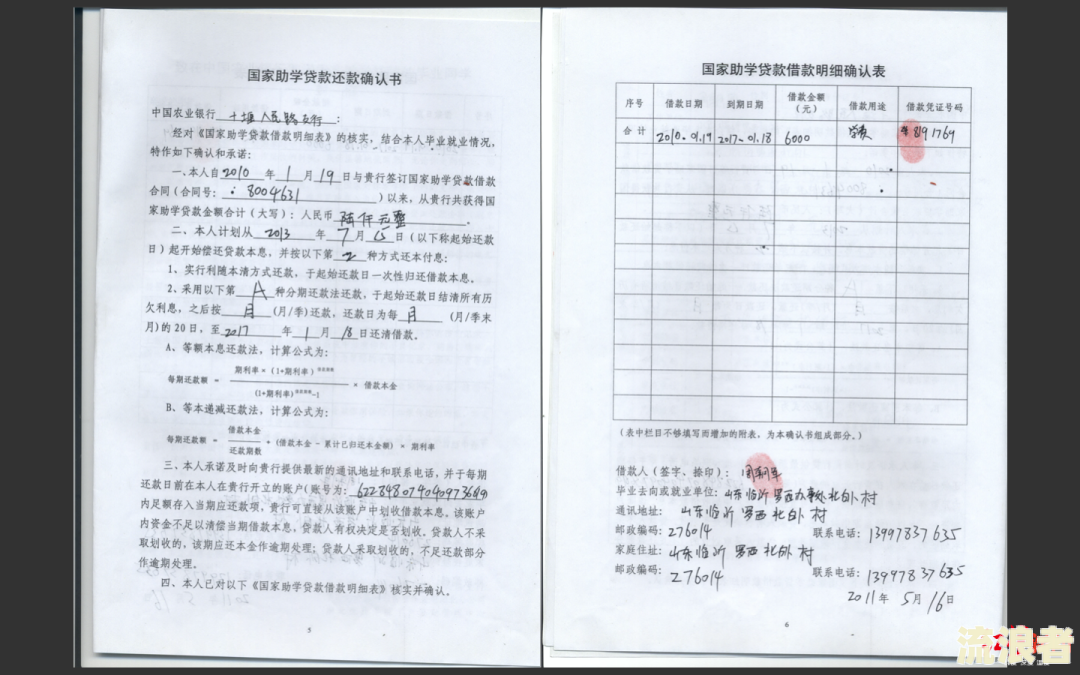 国家助学贷款还款确认书
中国农业银行 十堰人民路支行 :
经对《国家助学贷款借款明细表》的核实，结合本人毕业就业情况，
特作如下确认和承诺:
一、本人自2010 年 1 月 19 日与贵行签订国家助学贷款借款
合同(合同号: 8004631 )以来，从贵行共获得国
家助学贷款金额合计(大写): 人民币 陆仟元整 .
二、本人计划从 2013 年 7 月 15 日(以下称起始还款
日)起开始偿还贷款本息，并按以下第 2 种方式还本付息:
1、实行利随本清方式还款，于起始还款日一次性归还借款本息。
2、采用以下第 A 种分期还款法还款，于起始还款日结清所有历
欠利息，之后按 月 (月/季)还款，还款日为每 月 (月/季末
月)的20日，至2017 年 1 月 18 日还清借款。
A、等额本息还款法，计算公式为:
期利率×(1+期利率)
每期还款额 = × 借款本金
(1+期利率) -1
B、等本递减还款法，计算公式为:
借款本金
每期还款额 = + (借款本金 - 累计已归还本金额) × 期利率
还款期数
三、本人承诺及时向贵行提供最新的通讯地址和联系电话，并于每期
还款日前在本人在贵行开立的账户(账号为: 6228480794040973689
内足额存入当期应还款项，贵行可直接从该账户中划收借款本息。该账户
内资金不足以清偿当期借款本息，贷款人有权决定是否划收。贷款人不采
取划收的，该期应还本金作逾期处理；贷款人采取划收的，不足还款部分
作逾期处理。
四、本人已对以下《国家助学贷款借款明细表》核实并确认。
5
国家助学贷款借款明细确认表
序号 借款日期 到期日期 借款金额(元) 借款用途 借款凭证号码
合计 2010.01.19 2017.01.18 6000 学费 891764
(表中栏目不够填写而增加的附表，为本确认书组成部分。)
借款人(签字、捺印):
毕业去向或就业单位: 山东临沂罗西办事处北外村
通讯地址: 山东临沂罗西北外村
邮政编码: 276014 联系电话: 13997837635
家庭住址: 山东临沂罗西北外村
邮政编码: 276014 联系电话: 13997837635
2011年 5月 16日
6
流浪者